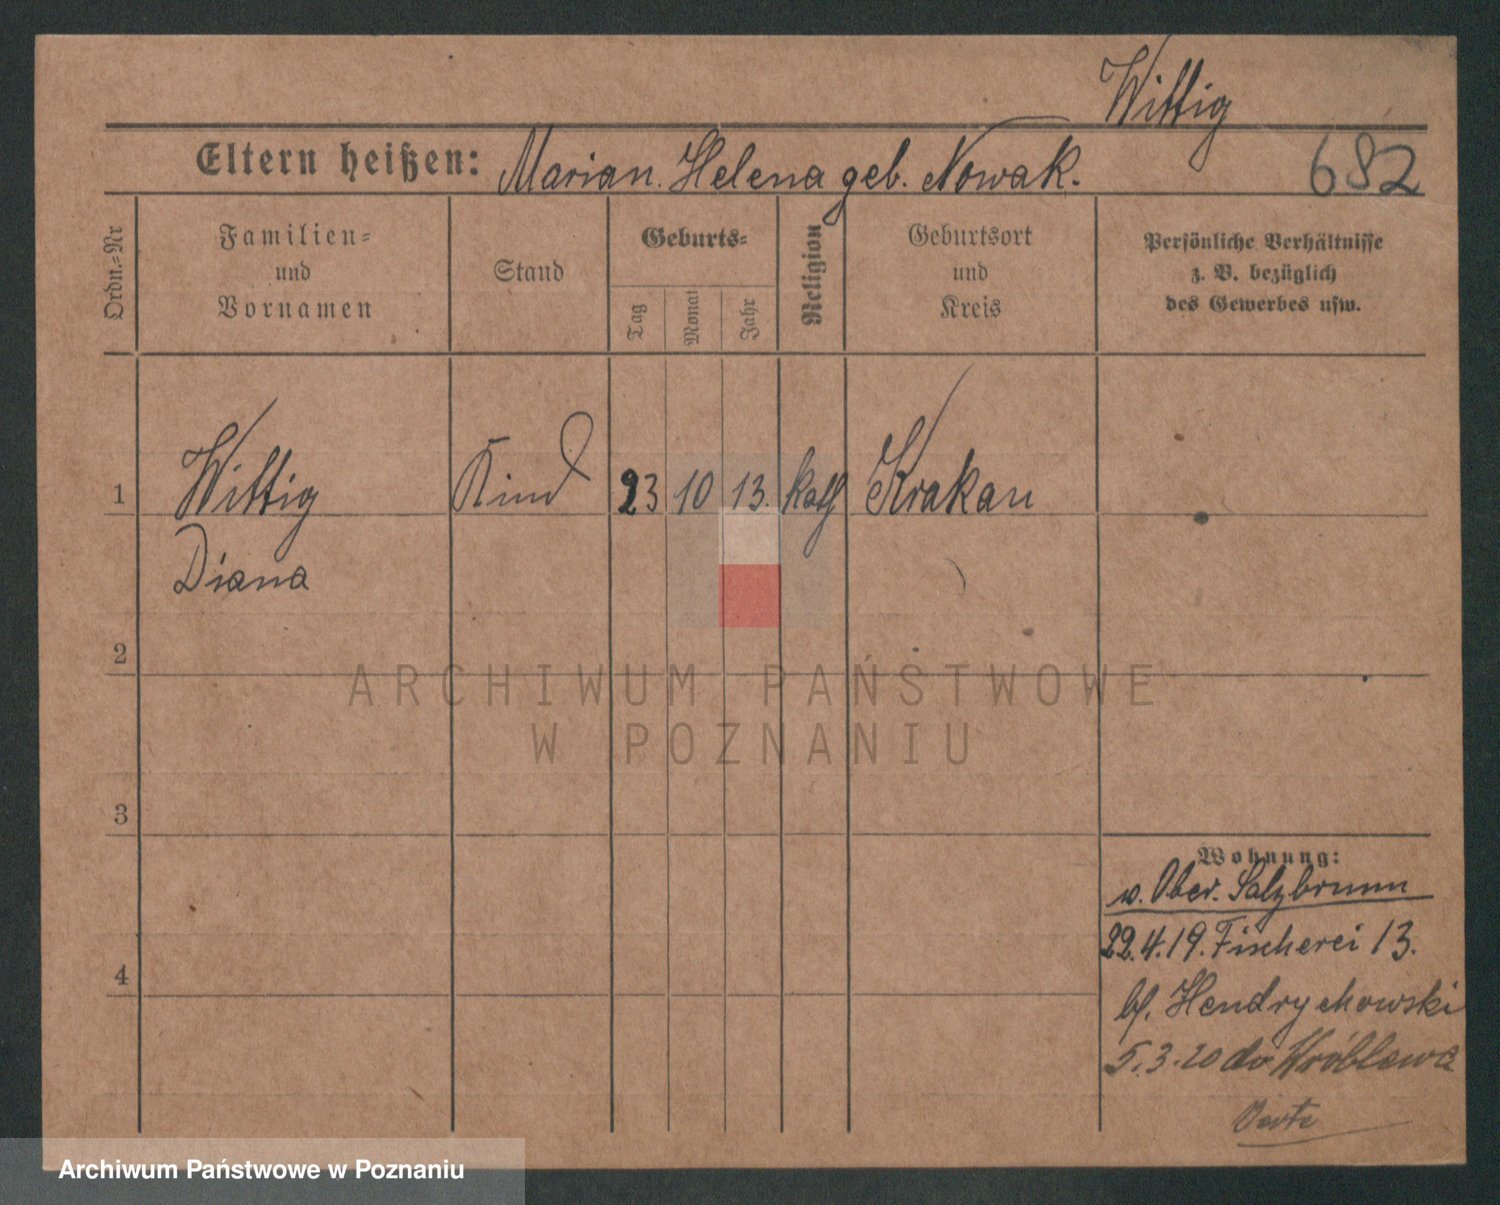 Wittig
Eltern heißen: Marian. Helena geb. Nowak.
682
Ordn.-Nr
Familien-
und
Vornamen
Stand
Geburts-
Tag
Monat
Jahr
Religion
Geburtsort
und
Kreis
Persönliche Verhältnisse
z. B. bezüglich
des Gewerbes usw.
1 Wittig Kind 23 10 13. kath Krakau
Diana
2
3
4
Wohnung:
v. Ober. Salzbrunn
22.4.19. Fischerei 13.
bf. Hendrychowski
5.3.20 do Wróblewa
ARCHIWUM PAŃSTWOWE
W POZNANIU
Archiwum Państwowe w Poznaniu